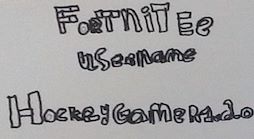 FORTNITEe
Username
HockeyGameR2.0